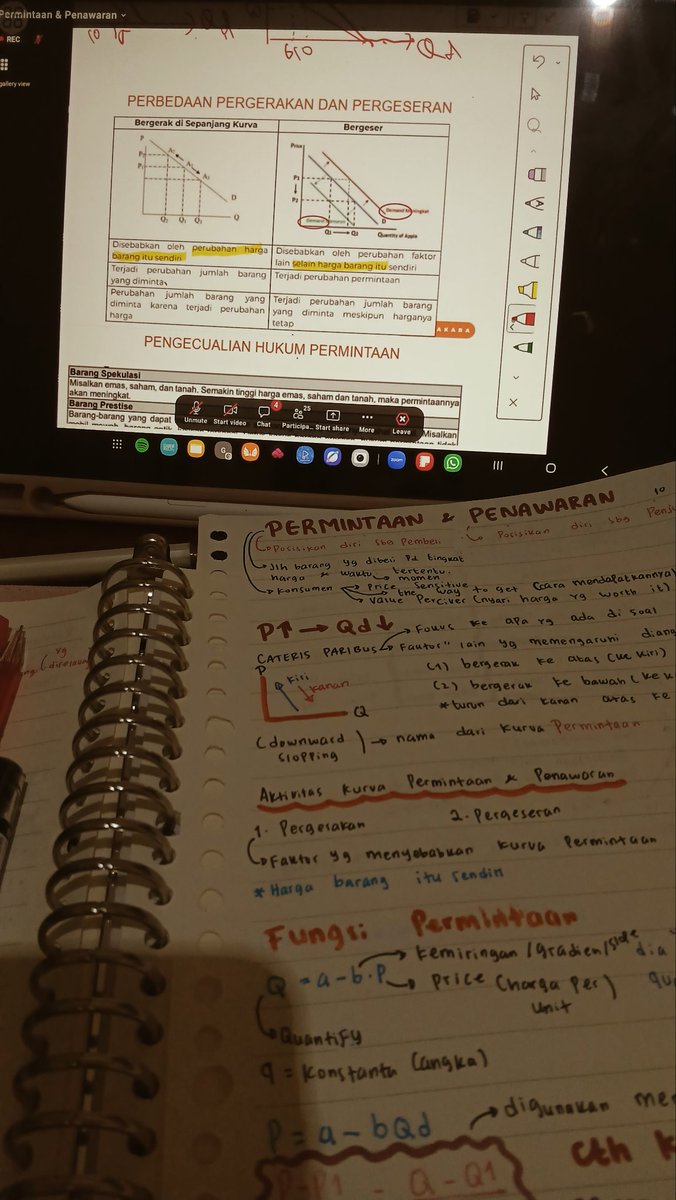 Permintaan & Penawaran
REC
gallery view
PERBEDAAN PERGERAKAN DAN PERGESERAN
Bergerak di Sepanjang Kurva
Bergeser
P
D
Q
Q₂ Q₁ Q₃
Price
P1
P2
Demand Meningkat
D
Q1 Q2
Quantity of Apple
Disebabkan oleh perubahan harga
barang itu sendiri
Disebabkan oleh perubahan faktor
lain selain harga barang itu sendiri
Terjadi perubahan jumlah barang
yang diminta
Terjadi perubahan permintaan
Perubahan jumlah barang yang
diminta karena terjadi perubahan
harga
Terjadi perubahan jumlah barang
yang diminta meskipun harganya
tetap
AKARA
PENGECUALIAN HUKUM PERMINTAAN
Barang Spekulasi
Misalkan emas, saham, dan tanah. Semakin tinggi harga emas, saham dan tanah, maka permintaannya
akan meningkat.
Barang Prestise
Barang-barang yang dapat
Misalkan
Unmute Start video Chat 4 Participa... 25 Start share More Leave
zoom
PERMINTAAN & PENAWARAN
10
Posisikan diri sbg Pembeli
Posisikan diri sbg
Jlh barang yg dibeli Pd tingkat
harga & waktu tertentu.
momen
Konsumen
Price Sensitive
the way to get (cara mendapatkannya)
Value Perciver (nyari harga yg worth it)
P↑ → Qd↓
Fokus ke apa yg ada di soal
CATERIS PARIBUS
Faktor" lain yg memengaruhi
P
kiri
kanan
Q
(1) bergerak ke atas (ke kiri)
(2) bergerak ke bawah
*turun dari kanan atas ke
(downward slopping) → nama dari kurva Permintaan
Aktivitas Kurva Permintaan & Penawaran
1. Pergerakan
2. Pergeseran
Faktor yg menyebabkan kurva Permintaan
* Harga barang itu sendiri
Fungsi Permintaan
kemiringan/gradien/
Q = a - b.P
price (harga per unit)
Quantity
a = konstanta (angka)
digunakan
P = a - bQd
cth
P-P1 = Q-Q1